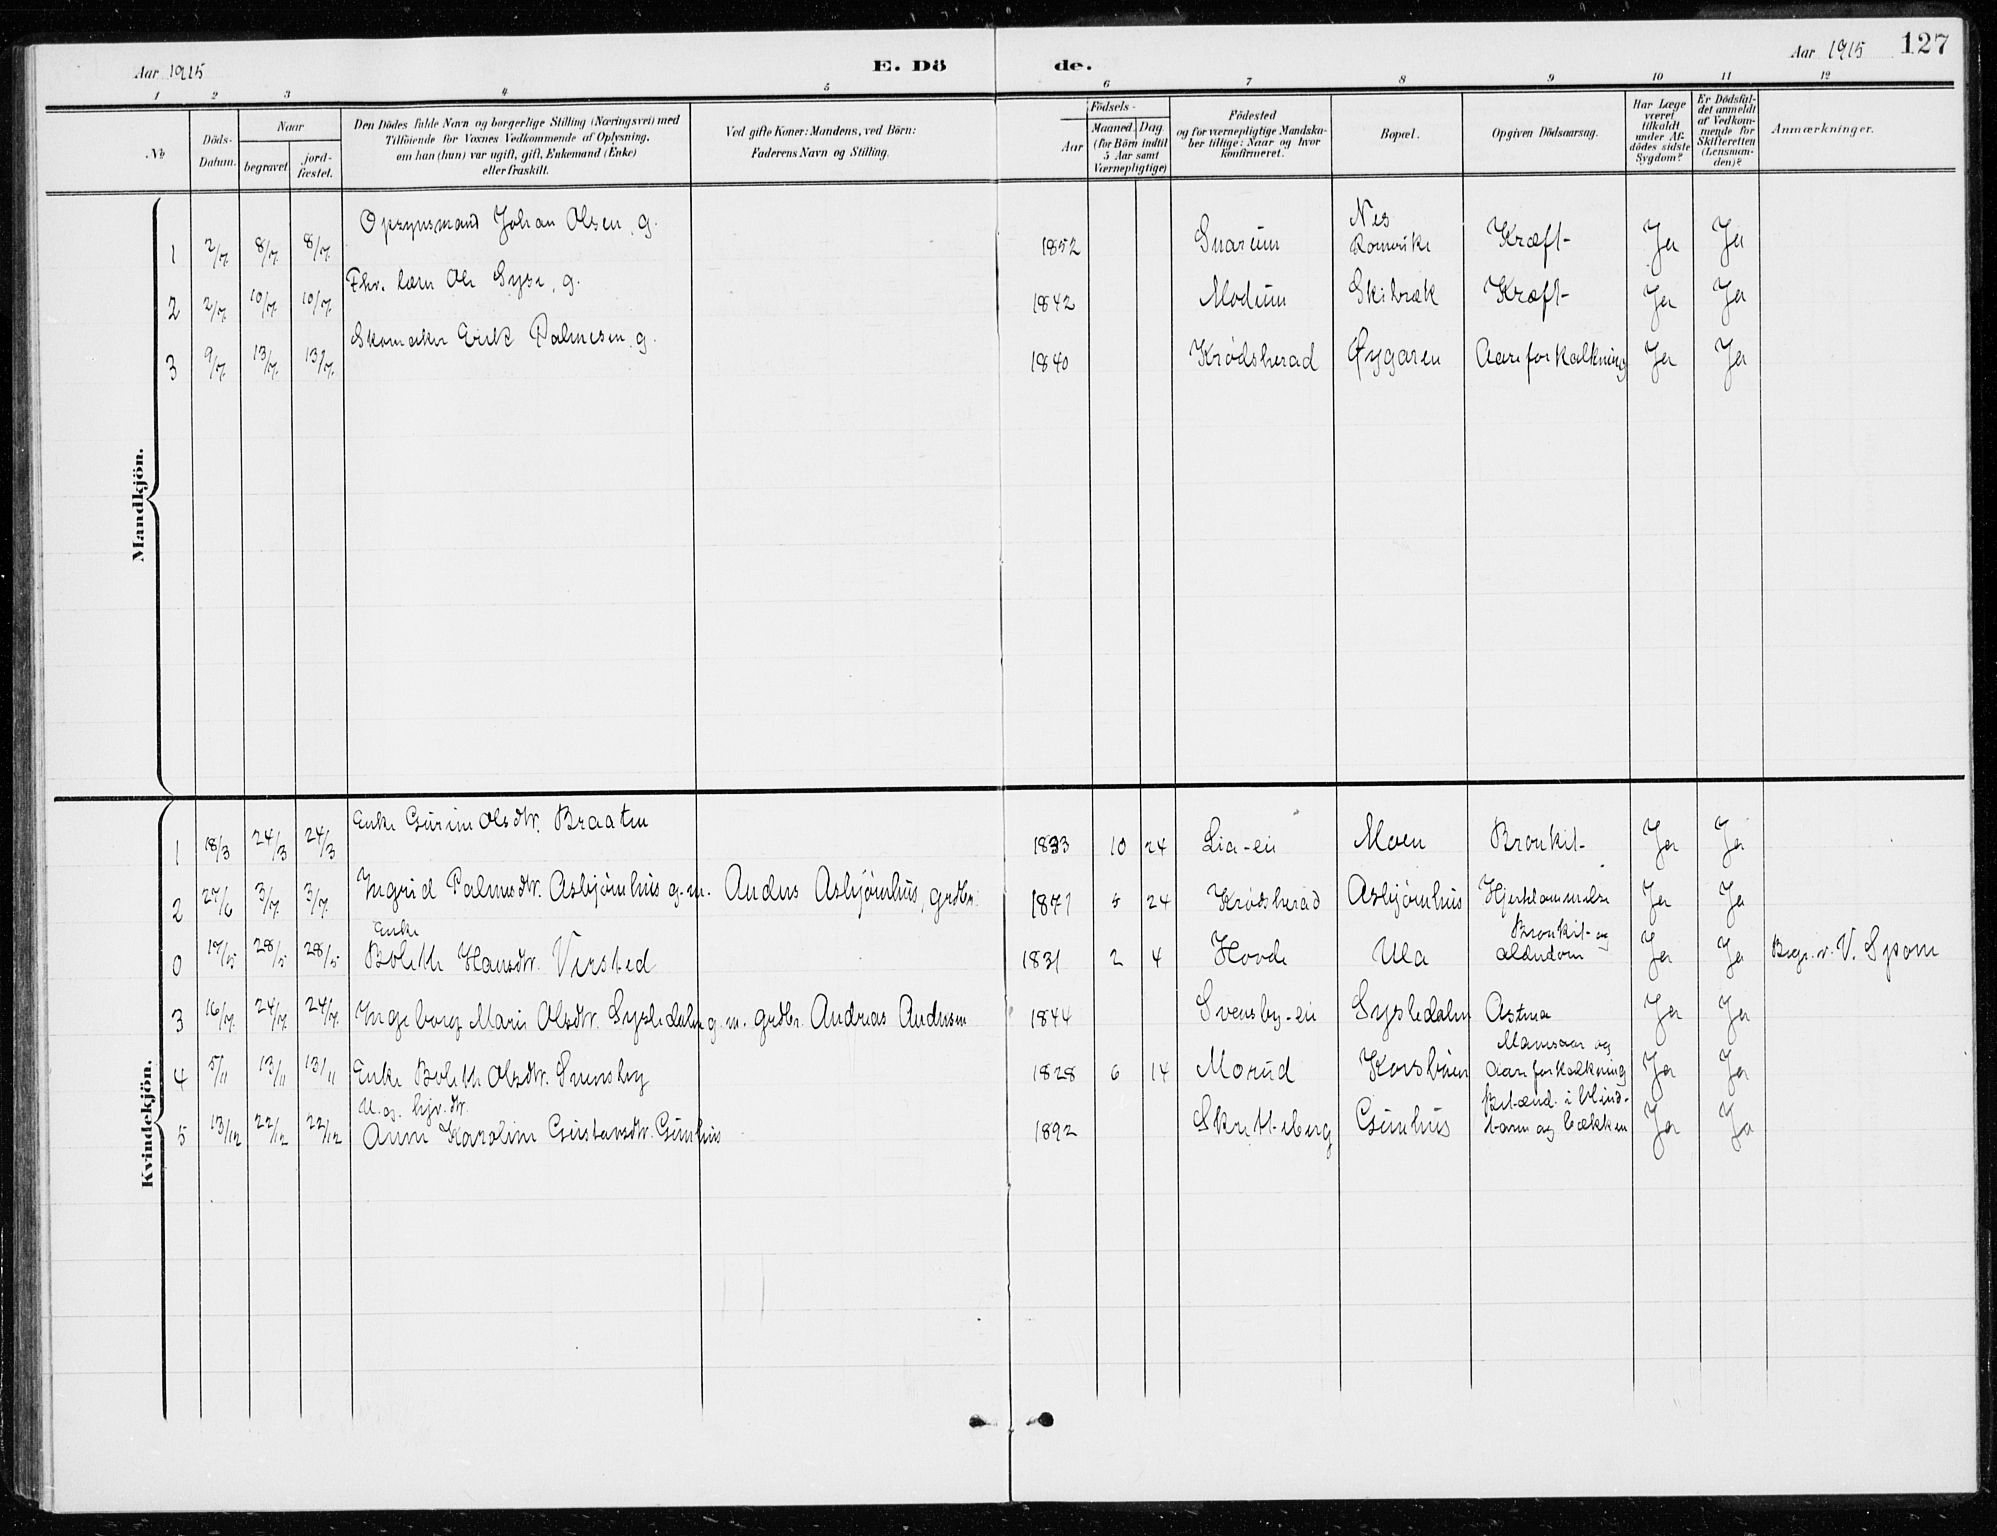 Aar 1915
E. Dö de.
Aar 1915 127
1 2 3 4 5 6 7 8 9 10 11 12
No
Döds-Datum.
Naar
begravet
jord-fæstet.
Den Dödes fulde Navn og borgerlige Stilling (Næringsvei) med
Tilföiende for Voxnes Vedkommende af Oplysning,
om han (hun) var ugift, gift, Enkemand (Enke)
eller fraskilt.
Ved gifte Koner: Mandens, ved Börn:
Faderens Navn og Stilling.
Födsels-
Aar
Maaned. Dag.
(for Börn indtil
5 Aar samt
Værnepligtige)
Födested
og for værnepligtige Mandska-
ber tillige: Naar og hvor
konfirmeret.
Bopæl.
Opgiven Dödsaarsag.
Har Læge
været
tilkaldt
under Af-
dödes sidste
Sygdom?
Er Dödsfal-
det anmeldt
af Vedkom-
mende for
Skifteretten
(Lensman-
den)?
Anmærkninger.
Mandkjön.
1 2/7 8/7 8/7 Opsynsmand Johan Olsen, g. 1852 Snarum Nes Romerike Kræft Ja Ja
2 2/7 10/7 10/7 Fhv. lærer Ole Sysle, g. 1842 Modum Skibræk Kræft Ja Ja
3 9/7 13/7 13/7 Skomaker Erik Palmesen, g. 1840 Krødsherad Øygaren Aareforkalkning Ja Ja
Kvindekjön.
1 18/3 24/3 24/3 Enke Gurine Olsdtr. Braaten 1833 10 24 Lia-eie Moen Bronkit Ja Ja
2 27/6 3/7 3/7 Ingrid Palmesdtr. Asbjørnhus g.m. Anders Asbjørnhus, grdbr. 1871 5 24 Krødsherad Asbjørnhus Hjertelammelse Ja Ja
0 19/5 28/5 28/5 Enke Bolette Hansdtr. Versted 1831 2 4 Hovde Ula Bronkit og alderdom Ja Ja Begr. v. V. Spone
3 16/7 24/7 24/7 Ingeborg Marie Olsdtr. Sysledalen g.m. grdbr. Andreas Andersen 1844 Svensby-eie Sysledalen Astma Ja Ja
4 5/11 13/11 13/11 Enke Bolette Olsdtr. Svensby 1828 6 14 Morud Korsbøen og Aareforkalkning Ja Ja
5 13/12 22/12 22/12 U.g. hjv. dtr. Anne Karoline Gustavsdtr. Gunhus 1892 Skretteberg Gunhus Betænd. i blind-tarm og bækken Ja Ja